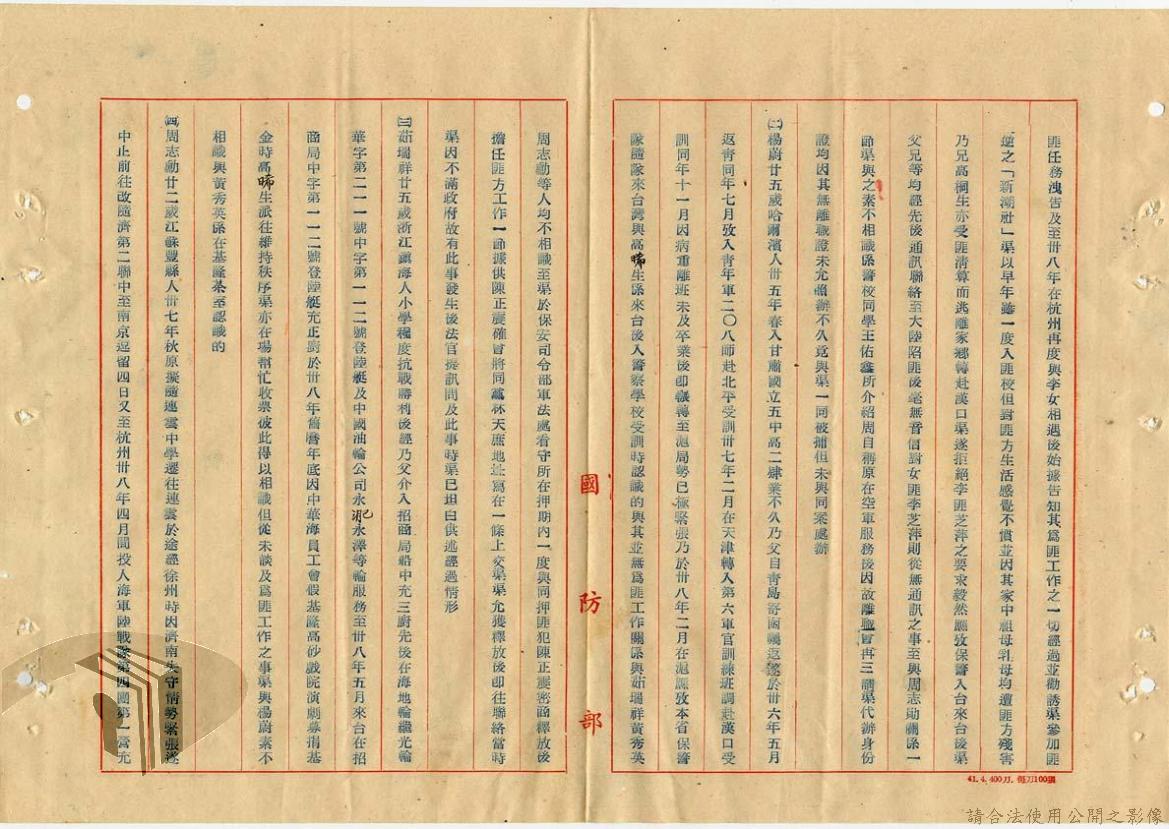 匪任務洩告及至卅八年在杭州再度與李女相遇後始據告知其爲匪工作之一切經過並勸誘渠參加匪
之「新潮社」渠以早年雖一度入匪校但對匪方生活感覺不慣並因其家中祖母乳母均遭匪方殘害
乃兄高桐生亦受匪清算而逃離家鄉轉赴漢口渠遂拒絕李匪芝萍之要求毅然應攷保警入台來台後渠
父兄等均經先後通訊聯絡至大陸陷匪後毫無音信對女匪李芝萍則從無通訊之事至與周志勛關係一
節渠與之素不相識係警校同學王佑鑫所介紹周自稱原在空軍服務後因故離職曾再三請渠代辦身份
證均因其無離職證未允照辦不久竟與渠一同被捕但未與同案處辦
㈡楊蔚廿五歲哈爾濱人卅五年春入甘肅國立五中高二肄業不久乃父自青島寄函囑返遂於卅六年五月
返青同年七月攷入青年軍二〇八師赴北平受訓卅七年二月在天津轉入第六軍官訓練班調赴漢口受
訓同年十一月因病重離班未及卒業後即輾轉至滬局勢已極緊張乃於卅八年二月在滬應攷本省保警
隊隨隊來台灣與高晞生係來台後入警察學校受訓時認識的與其並無爲匪工作關係與茹瑞祥黃秀英
國防部
周志勛等人均不相識至渠於保安司令部軍法處看守所在押期內一度與同押匪犯陳正宸密商釋放後
擔任匪方工作一節據供陳正宸確曾將同黨林天應地址寫在一條上交渠渠允獲釋放後即往聯絡當時
渠因不滿政府故有此事發生後法官提訊問及此事時渠已坦白供述經過情形
㈢茹瑞祥廿五歲浙江鎮海人小學程度抗戰勝利後經乃父介入招商局船中充三廚先後在海地輪繼光輪
華字第二一一號中字第一一二號登陸艇及中國油輪公司永淝永澤等輪服務至卅八年五月來台在招
商局中字第一一二號登陸艇充正廚於卅八年舊曆年底因中華海員工會假基隆高砂戲院演劇募捐基
金時高晞生派往維持秩序渠亦在場幫忙收票彼此得以相識但從未談及爲匪工作之事渠與楊蔚素不
相識與黃秀英係在基隆茶室認識的
㈣周志勛廿二歲江蘇豐縣人卅七年秋原擬隨連雲中學遷往連雲於途經徐州時因濟南失守情勢緊張遂
中止前往改隨濟第二聯中至南京逗留四日又至杭州卅八年四月間投入海軍陸戰隊第四團第一營充
41.4.400刀.每刀100張
請合法使用公開之影像